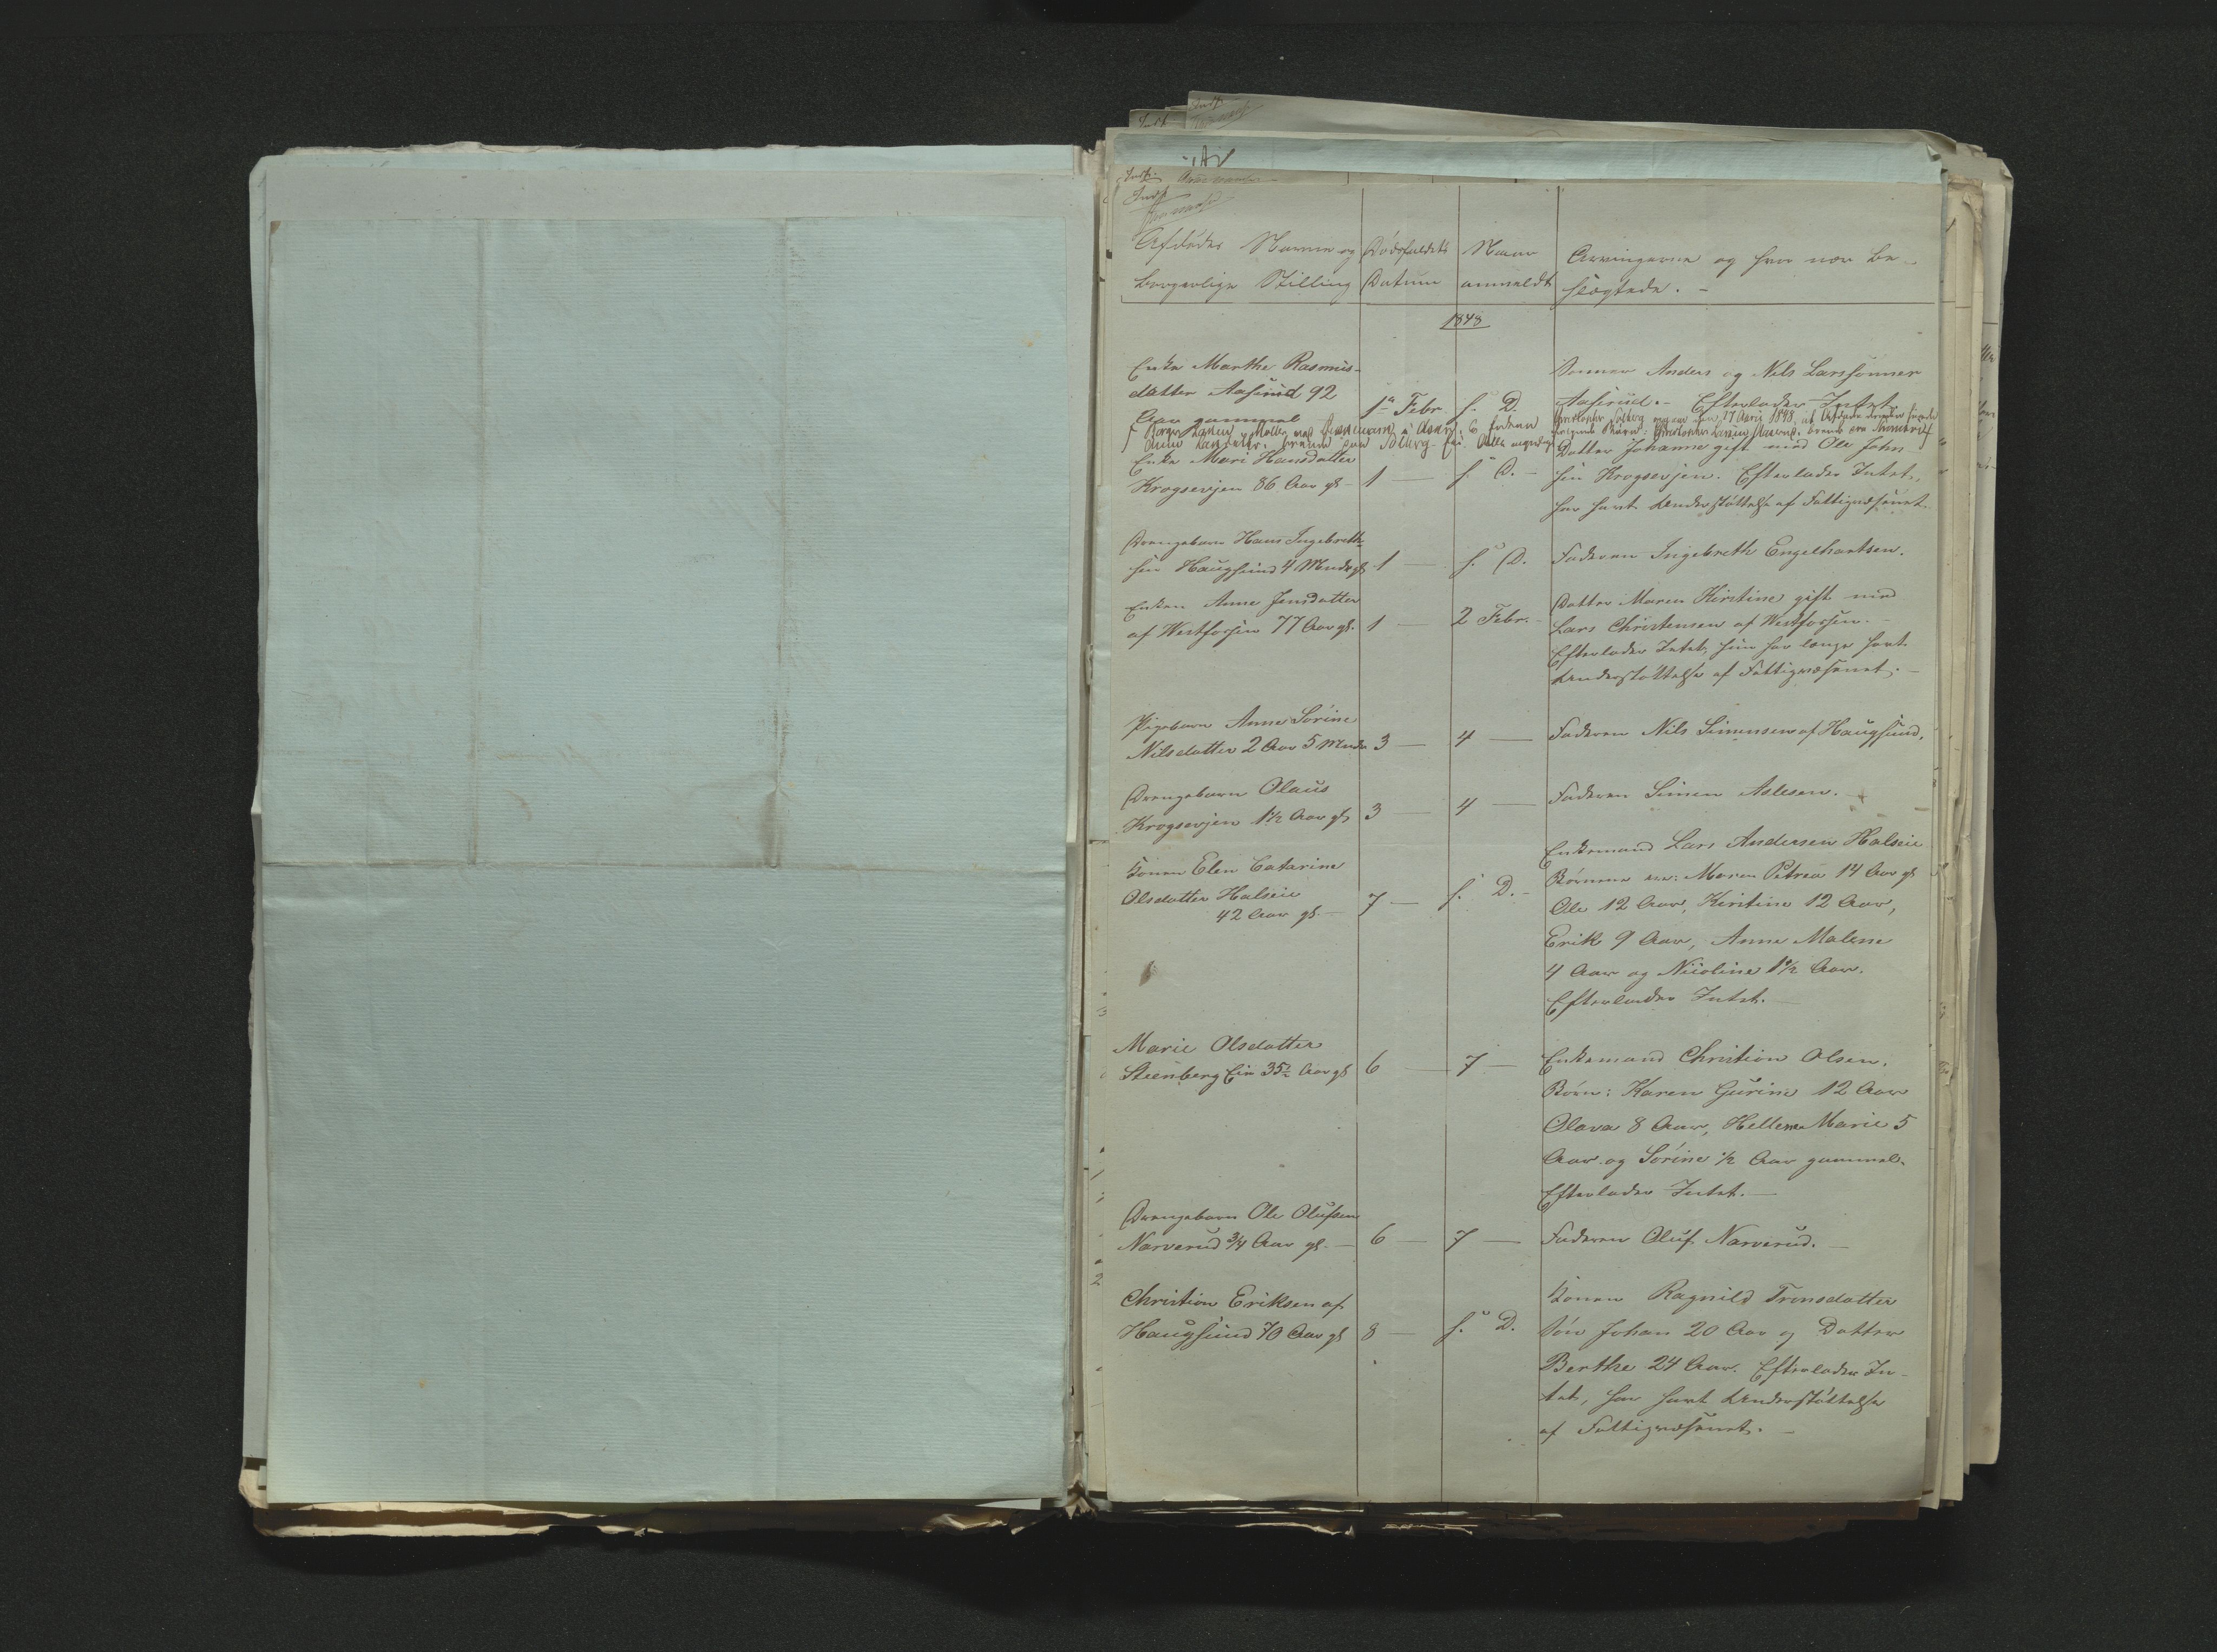 Indf
Afdødes Navne og
borgerlige Stilling
Dødsfaldets
Datum
Naar
anmeldt
Arvingerne og hvor nær be-
slægtede. -
1848
Enke Marthe Rasmus-
datter Aaserud 92
Aar gammel
1ste Febr.
s. D.
Sønner Anders og Nils Larssønner
Aaserud. - Efterlader Intet.
Enke Mari Hansdatter
Krogsevjen 86 Aar gl -
1 -
s. D. -
Datter Johanne gift med Ole John-
sen Krogsevjen. Efterlader Intet,
har havt Understøttelse af Fattigvæsenet.
Drengebarn Hans Ingebreth-
sen Haugsund 4 Mndr gl
1 -
s. D.
Faderen Ingebreth Engelhartsen.
Enken Anne Jensdatter
af Vestfossen 77 Aar gl.
1 -
2 Febr.
Datter Maren Kirstine gift med
Lars Christensen af Vestfossen. -
Efterlader Intet, hun har længe havt
Understøttelse af Fattigvæsenet. -
Pigebarn Anne Sørine
Nilsdatter 2 Aar 5 Mndr
3 -
4 -
Faderen Nils Simensen af Haugsund.
Drengebarn Olaus
Krogsevjen 1½ Aar gl
3 -
4 -
Faderen Simen Aslesen. -
Konen Elen Catarine
Olsdatter Halseie
42 Aar gl. -
7 -
s. D. -
Enkemand Lars Andersen Halseie
Børnene ere: Maren Petrea 14 Aar gl
Ole 12 Aar, Kirstine 12 Aar,
Erik 9 Aar, Anne Malene
4 Aar og Nicoline 1½ Aar.
Efterlader Intet. -
Marie Olsdatter
Steenberg Eie 35½ Aar gl
6 -
7 -
Enkemand Christian Olsen.
Børn: Karen Gurine 12 Aar
Olava 8 Aar, Hellene Marie 5
Aar og Sørine ½ Aar gammel.
Efterlader Intet. -
Drengebarn Ole Olufsen
Narverud ¾ Aar gl. -
6 -
7 -
Faderen Oluf Narverud. -
Christian Eriksen af
Haugsund 70 Aar gl
8 -
s. D.
Konen Ragnild Tronsdatter
Søn Johan 20 Aar og Datter
Berthe 24 Aar. Efterlader In-
tet, har havt Understøttelse
af Fattigvæsenet. -